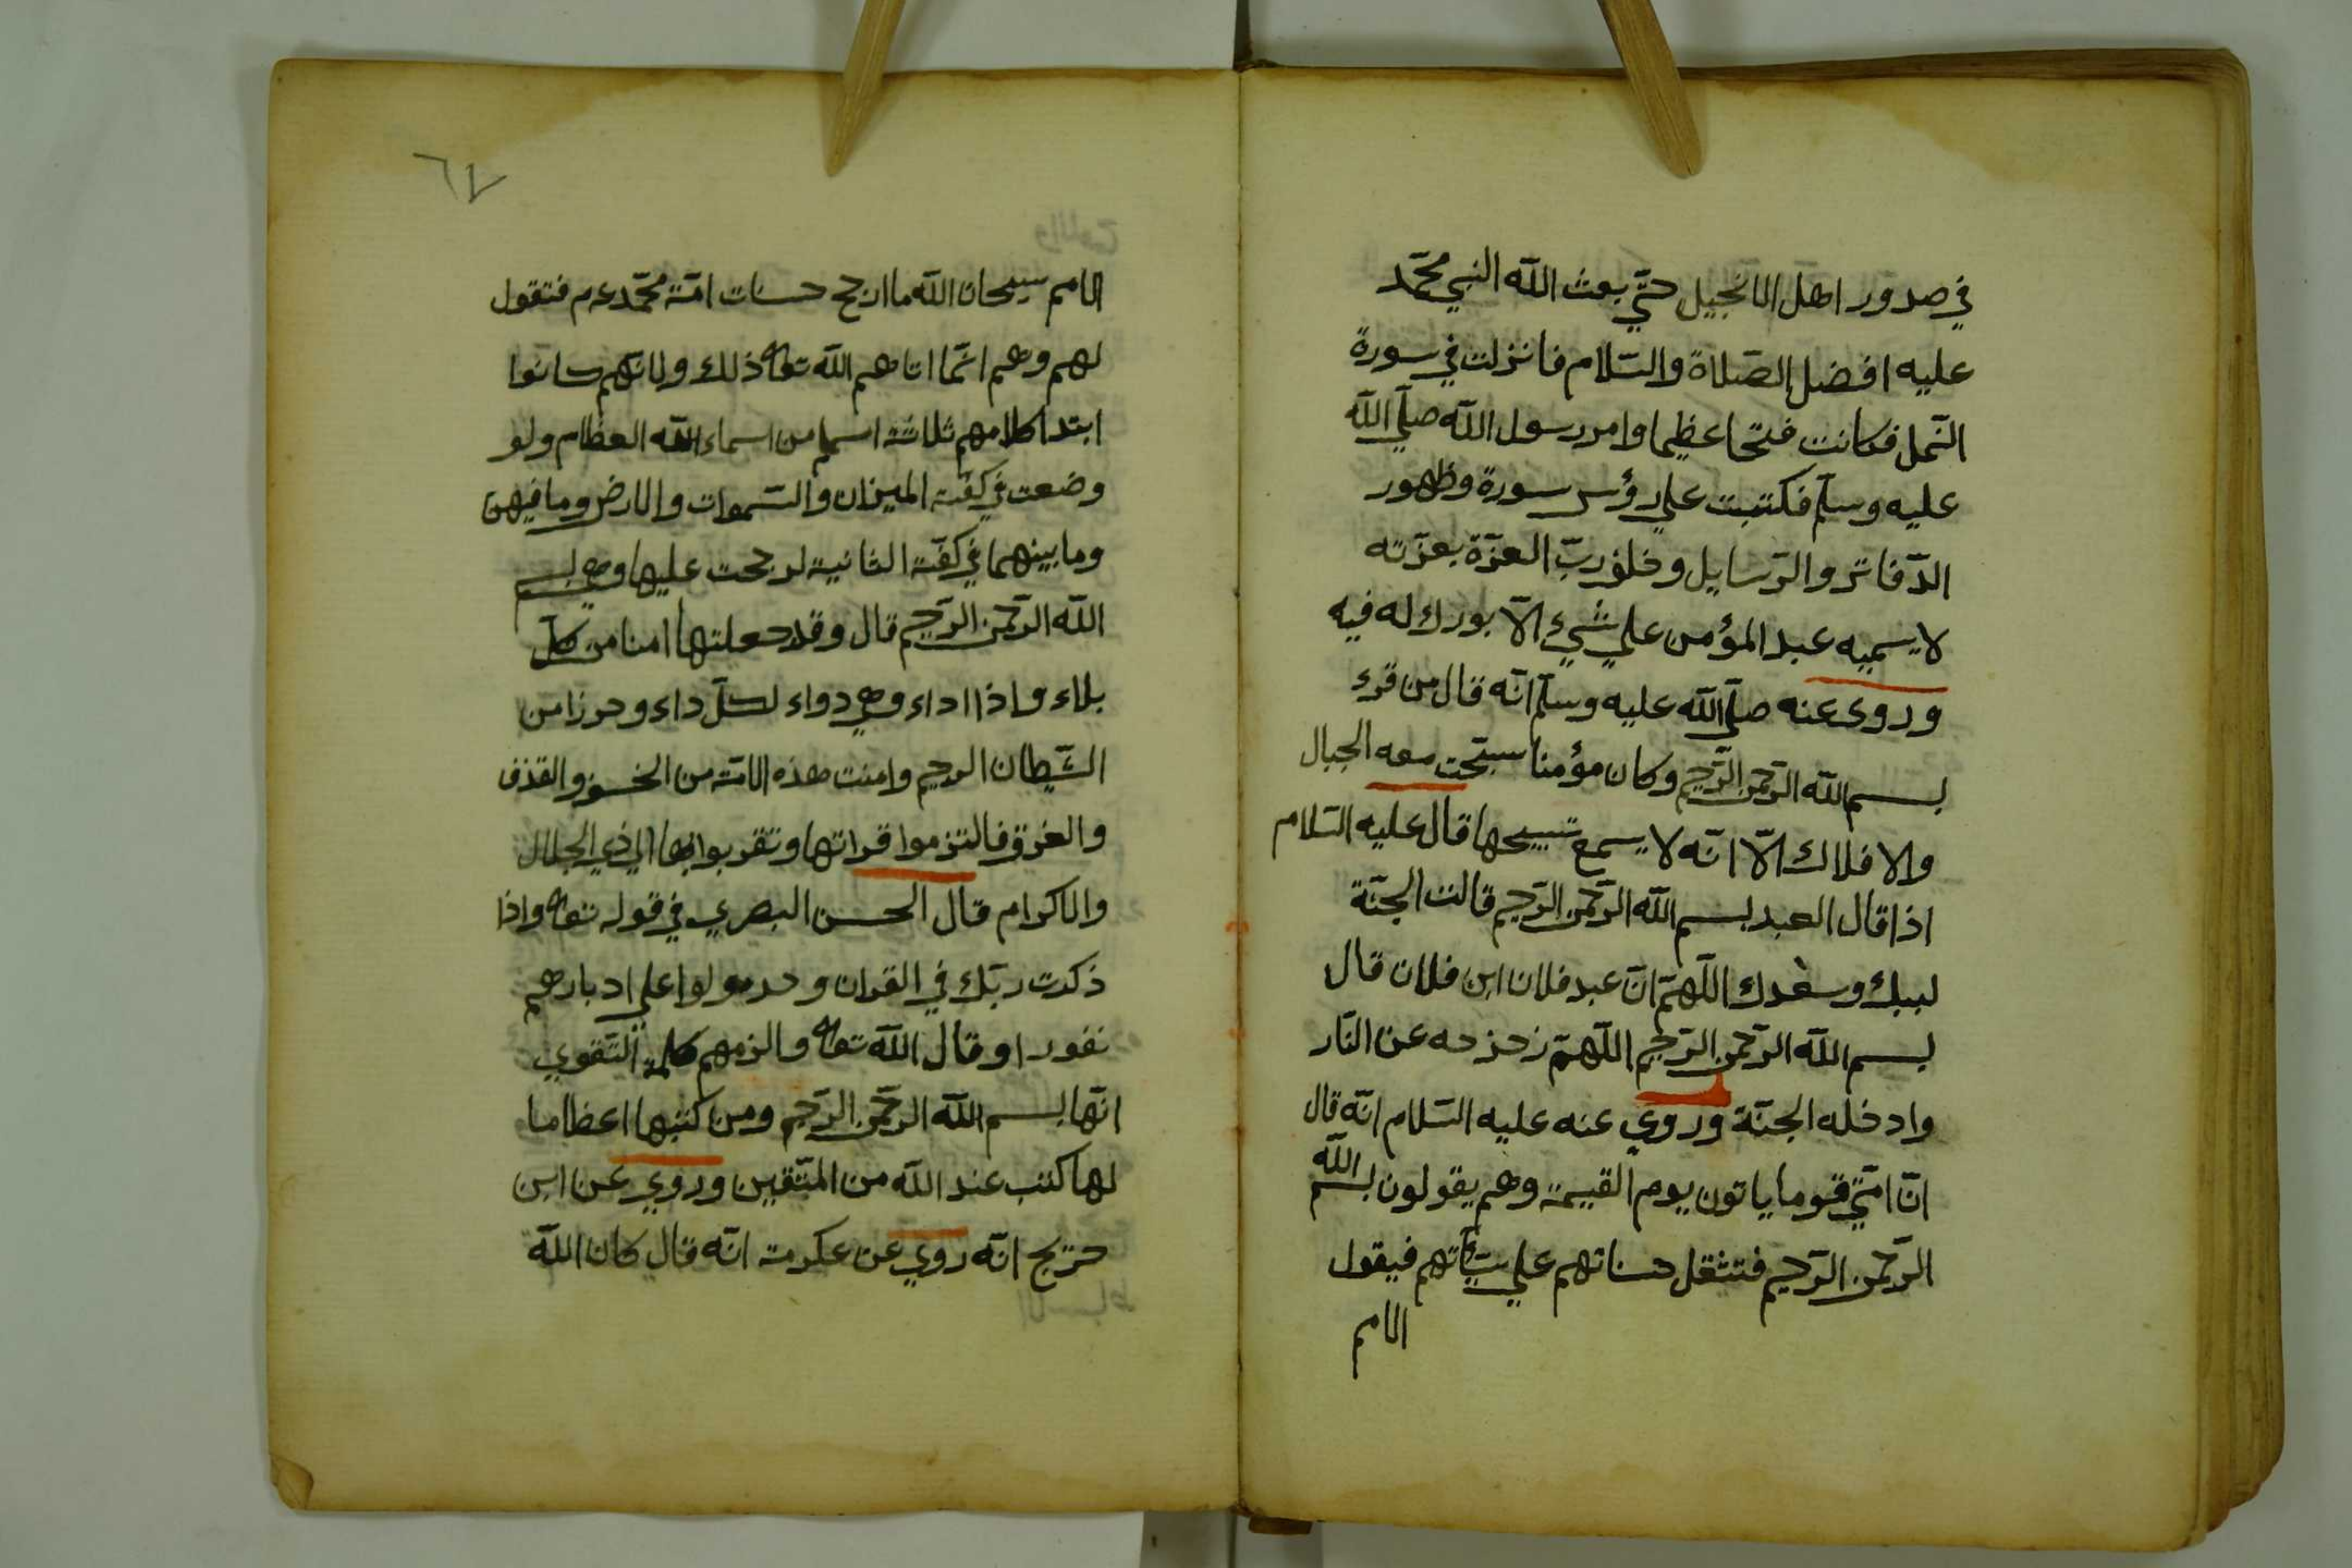 في صدور اهل الانجيل حتّي بعث اللّه النبي محمّد
عليه افضل الصّلاة والسّلام فانزلت في سورة
النّمل فكانت فتحا عظيما وامر رسول اللّه صلّي اللّه
عليه وسلّم فكتبت علي رؤس سورة وظهور
الدّفاتر والرّسايل وخلق ربّ العزّة بعزّته
لا يسميه عبد المؤمن علي شيء الّا بورك له فيه
وروى عنه صلّي اللّه عليه وسلّم انّه قال من قرء
بسم اللّه الرّحمن الرّحيم وكان مؤمنا سبّحت معه الجبال
والافلاك الّا انّه لا يسمع تسبيحها قال عليه السّلام
اذا قال العبد بسم اللّه الرّحمن الرّحيم قالت الجنّة
لبيك وسعدك اللّهمّ انّ عبد فلان ابن فلان قال
بسم اللّه الرّحمن الرّحيم اللّهمّ زحزحه عن النّار
وادخله الجنّة وروي عنه عليه السّلام انّه قال
انّ امّتي قوما ياتون يوم القيمة وهم يقولون بسم اللّه
الرّحمن الرّحيم فتثقل حسناتهم علي سيّئاتهم فيقول
الامم
٦٧
الامم سبحان اللّه ما ارجح حسنات امّة محمّد عم فتقول
لهم وهم انّما اتاهم اللّه تعا ذلك ولانّهم كانوا
ابتدا كلامهم ثلاثة اسما من اسماء اللّه العظام ولو
وضعت في كفّة الميزان والسّموات والارض وما فيهن
وما بينهما في كفّة الثانية لرجحت عليها وهي بسم
اللّه الرّحمن الرّحيم قال وقد جعلتها امنا من كلّ
بلاء واذا اداء وهي دواء لكلّ داء وحرزا من
الشّيطان الرجيم وامنت هذه الامّة من الخسف والقذف
والغرق فالتزموا قراتها وتقربوا بها الي ذي الجلال
والاكرام قال الحسن البصري في قوله تعا واذا
ذكرت ربّك في القران وحده ولوا علي ادبارهم
نفورا وقال اللّه تعا والزمهم كلمة التّقوي
انّها بسم اللّه الرّحمن الرّحيم ومن كتبها اعظاما
لها كتب عند اللّه من المتّقين وروي عن ابن
جريج انّه روي عن عكرمة انّه قال كان اللّه